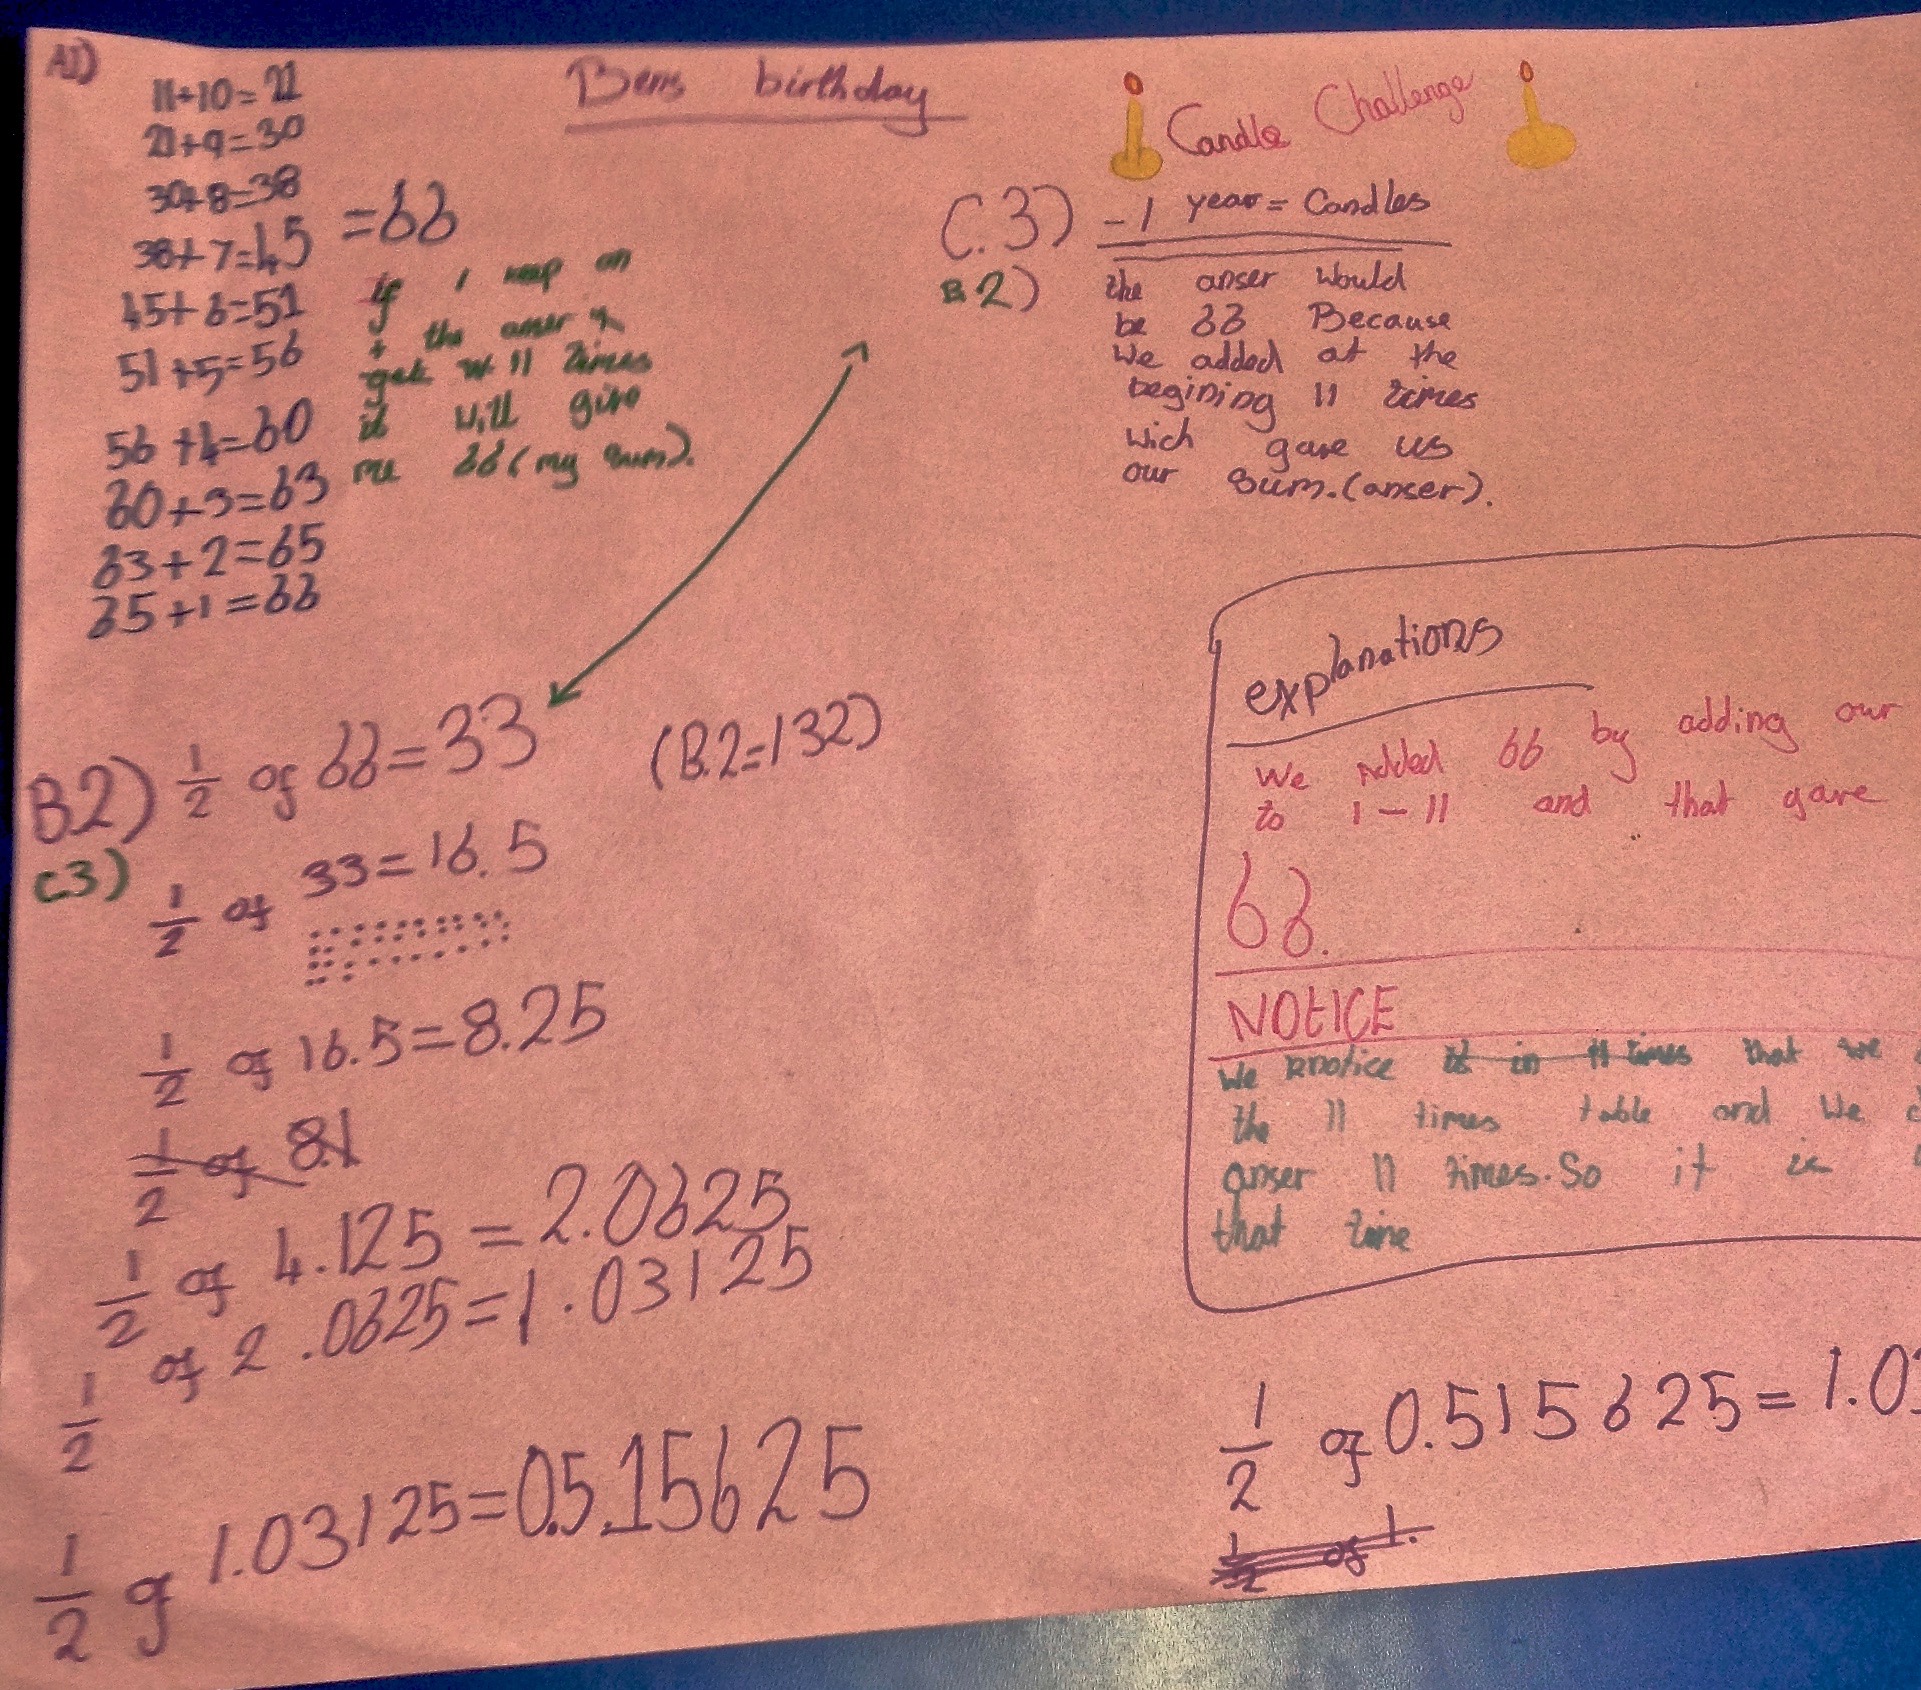 A1)
11+10=21
21+9=30
30+8=38
38+7=45
45+6=51
51+5=56
56+4=60
60+3=63
63+2=65
65+1=66
=66
if I keep on
+ the anser
get 11 times
it will give
me 66 (my sum).
Bens birthday
Candle Challenge
C.3) -1 year = Candles
B2) the anser would
be 66 Because
We added at the
begining 11 times
wich gave us
our sum.(anser).
B2) 1/2 of 66=33 (B.2=132)
C3)
1/2 of 33=16.5
1/2 of 16.5=8.25
1/2 of 8.1
1/2 of 4.125=2.0625
1/2 of 2.0625=1.03125
1/2 of 1.03125=05.15625
explanations
We Added 66 by adding our
to 1-11 and that gave
66.
NOtICE
We knotice it in 11 times that we
the 11 times table and We
anser 11 times. So it is
that time
1/2 of 0.515625=1.03
1/2 of 1.